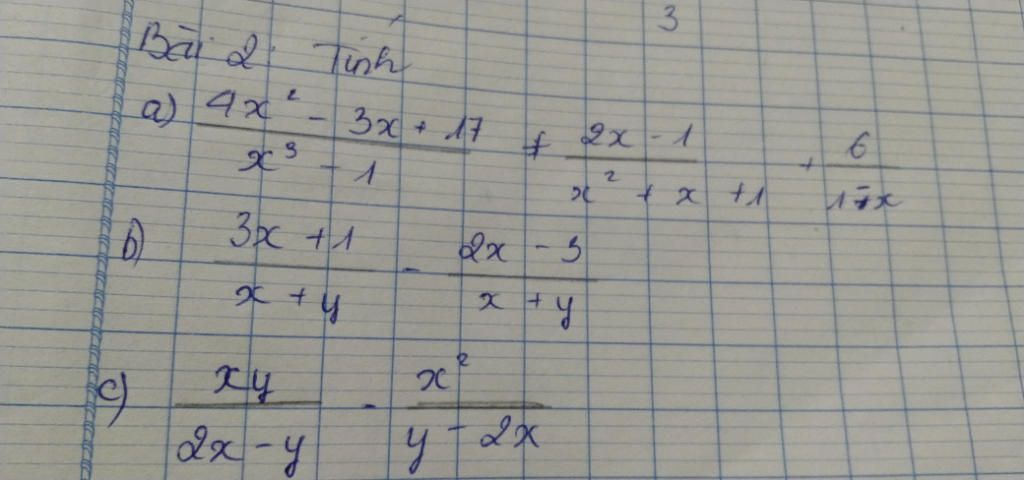 3
Bài 2: Tính
a) \frac{4x² - 3x + 17}{x³ - 1} + \frac{2x - 1}{x² + x + 1} + \frac{6}{1 - x}
b) \frac{3x + 1}{x + y} - \frac{2x - 3}{x + y}
c) \frac{xy}{2x - y} - \frac{x²}{y - 2x}